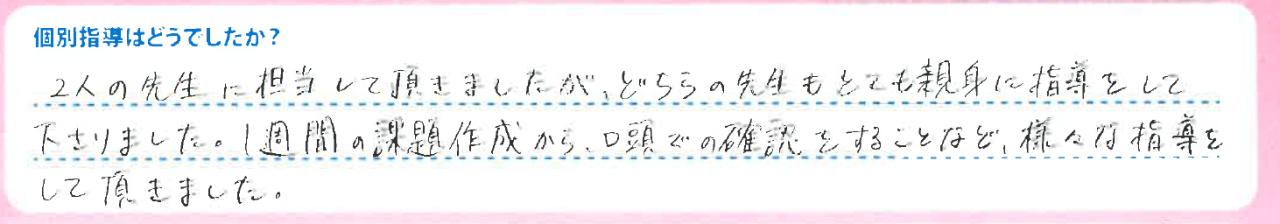 個別指導はどうでしたか?
2人の先生に担当して頂きましたが、どちらの先生もとても親身に指導をして
下さりました。1週間の課題作成から、口頭での確認をすることなど、様々な指導を
して頂きました。